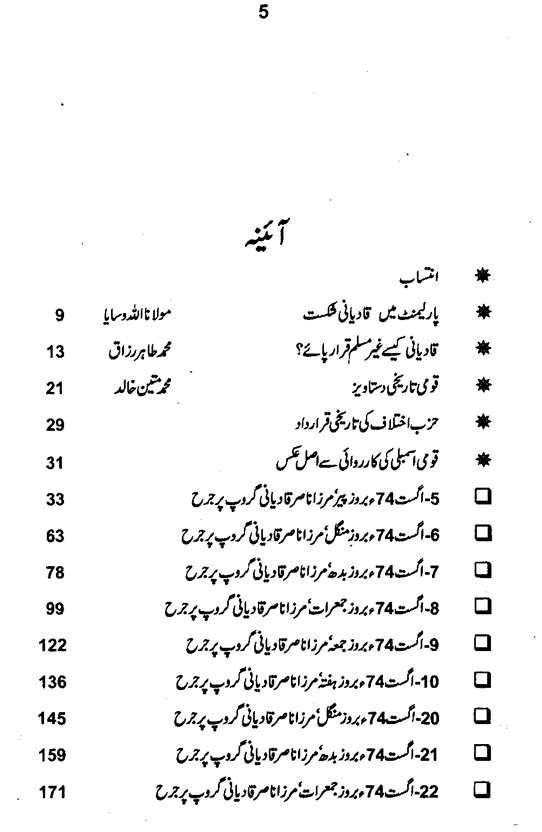 5
آئینہ
✵ انتساب
✵ پارلیمنٹ میں قادیانی شکست مولانا اللہ وسایا 9
✵ قادیانی کیسے غیر مسلم قرار پائے؟ محمد طاہر رزاق 13
✵ قومی تاریخی دستاویز محمد متین خالد 21
✵ حزب اختلاف کی تاریخی قرارداد 29
✵ قومی اسمبلی کی کارروائی سے اصل عکس 31
❑ 5-اگست 74ء بروز پیر' مرزا ناصر قادیانی گروپ پر جرح 33
❑ 6-اگست 74ء بروز منگل' مرزا ناصر قادیانی گروپ پر جرح 63
❑ 7-اگست 74ء بروز بدھ' مرزا ناصر قادیانی گروپ پر جرح 78
❑ 8-اگست 74ء بروز جمعرات' مرزا ناصر قادیانی گروپ پر جرح 99
❑ 9-اگست 74ء بروز جمعہ' مرزا ناصر قادیانی گروپ پر جرح 122
❑ 10-اگست 74ء بروز ہفتہ' مرزا ناصر قادیانی گروپ پر جرح 136
❑ 20-اگست 74ء بروز منگل' مرزا ناصر قادیانی گروپ پر جرح 145
❑ 21-اگست 74ء بروز بدھ' مرزا ناصر قادیانی گروپ پر جرح 159
❑ 22-اگست 74ء بروز جمعرات' مرزا ناصر قادیانی گروپ پر جرح 171